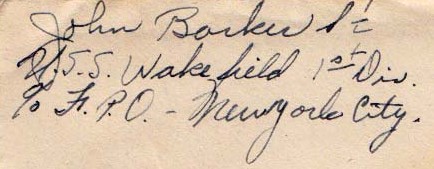 John Barker S 1/c
U.S.S. Wakefield 1st Div.
% F.P.O. - New York City.